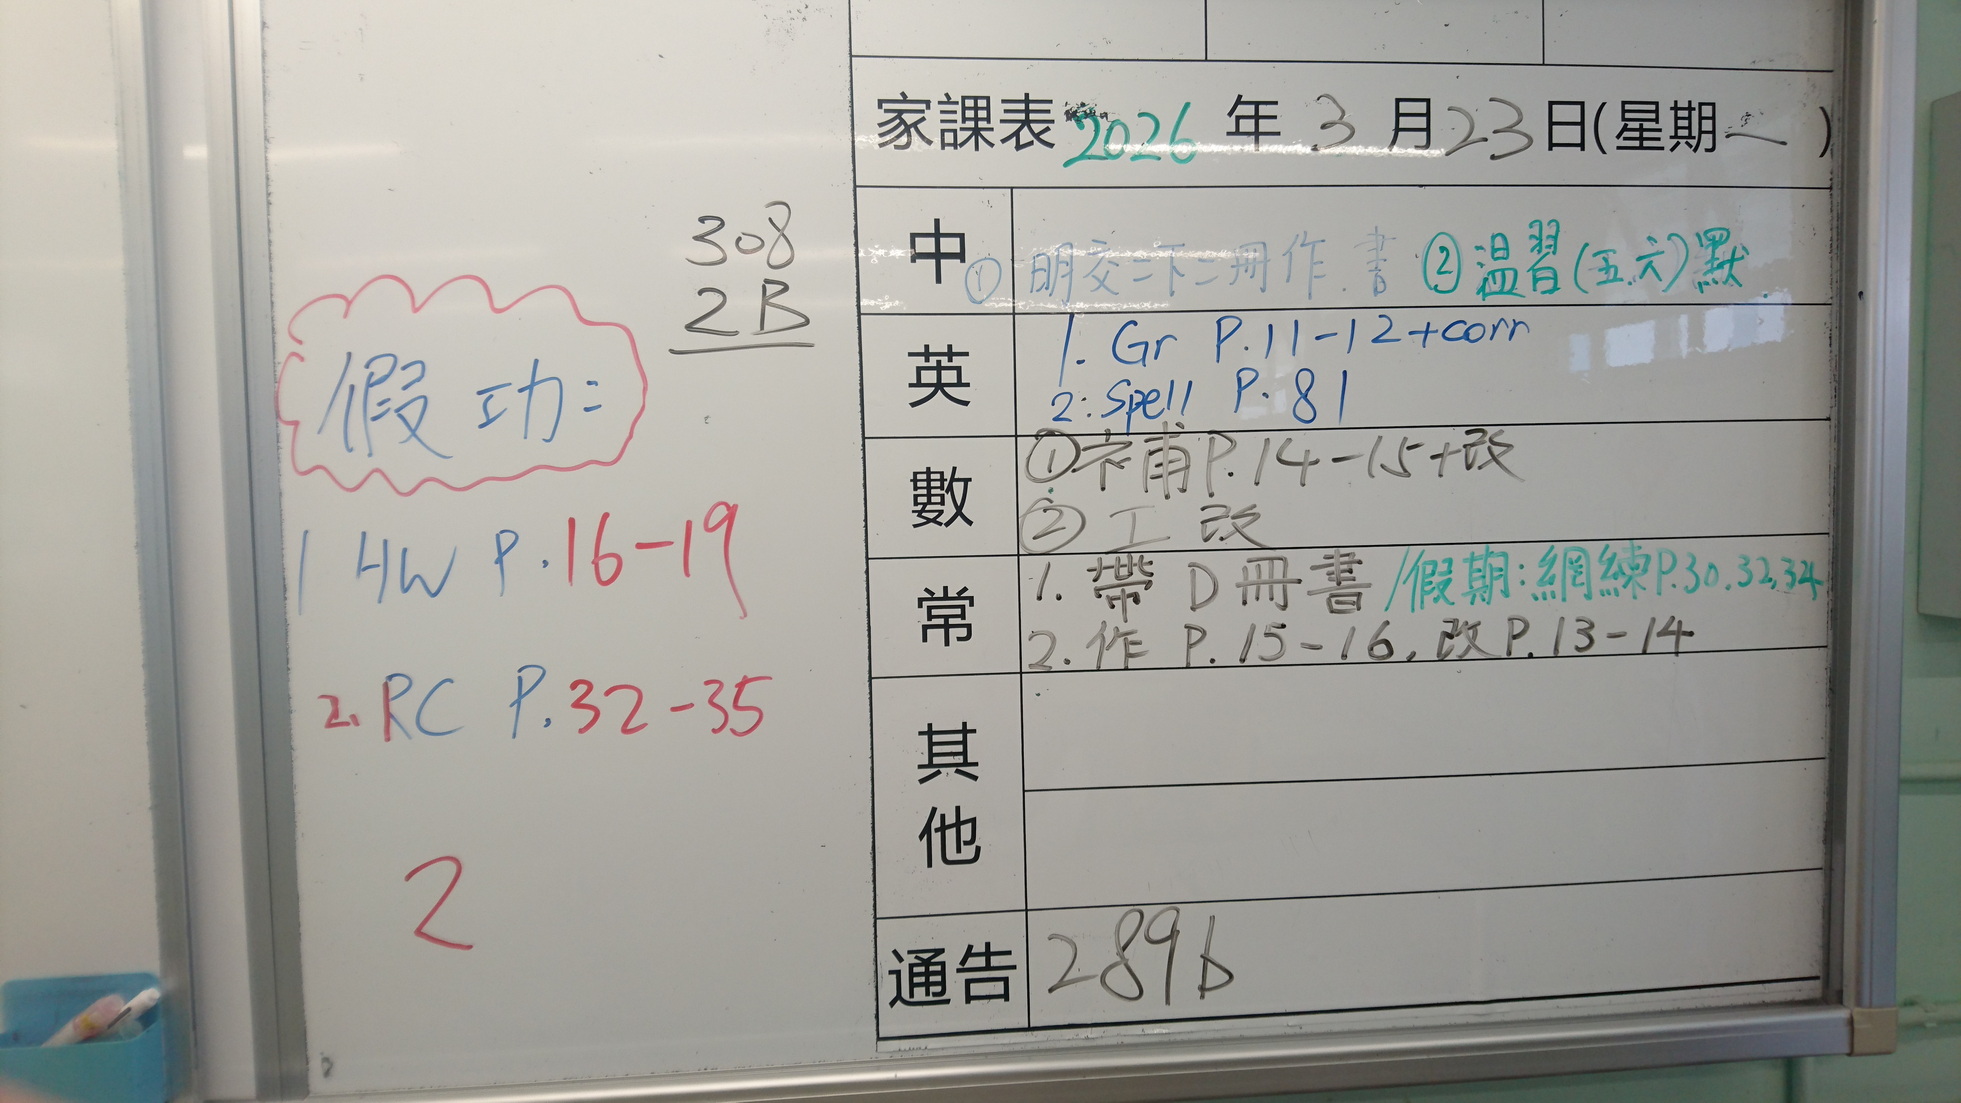 308
2B
假功:
1 HW P.16-19
2. RC P.32-35
2
家課表 2026 年 3 月 23 日(星期一)
中 ① 明交二下二冊作.書 ②温習(五.六)默
英 1. Gr P.11-12+corr
2. Spell P.81
數 ①补甫P.14-15+改
② 工 改
常 1. 帶 D 冊書/假期:網練P.30.32,34
2. 作 P.15-16,改P.13-14
其他
通告 289b